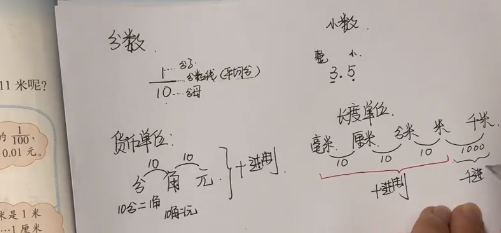 分数
1…分子
……分数线(平均分)
10…分母
小数
整 小
3.5
11 米呢?
1/100
0.01 元。
来是 1 米
…1 厘米
货币单位:
10 10
分 角 元 } 十进制
10分=1角 10角=1元
长度单位
毫米 厘米 分米 米 千米
10 10 10 1000
十进制 千进